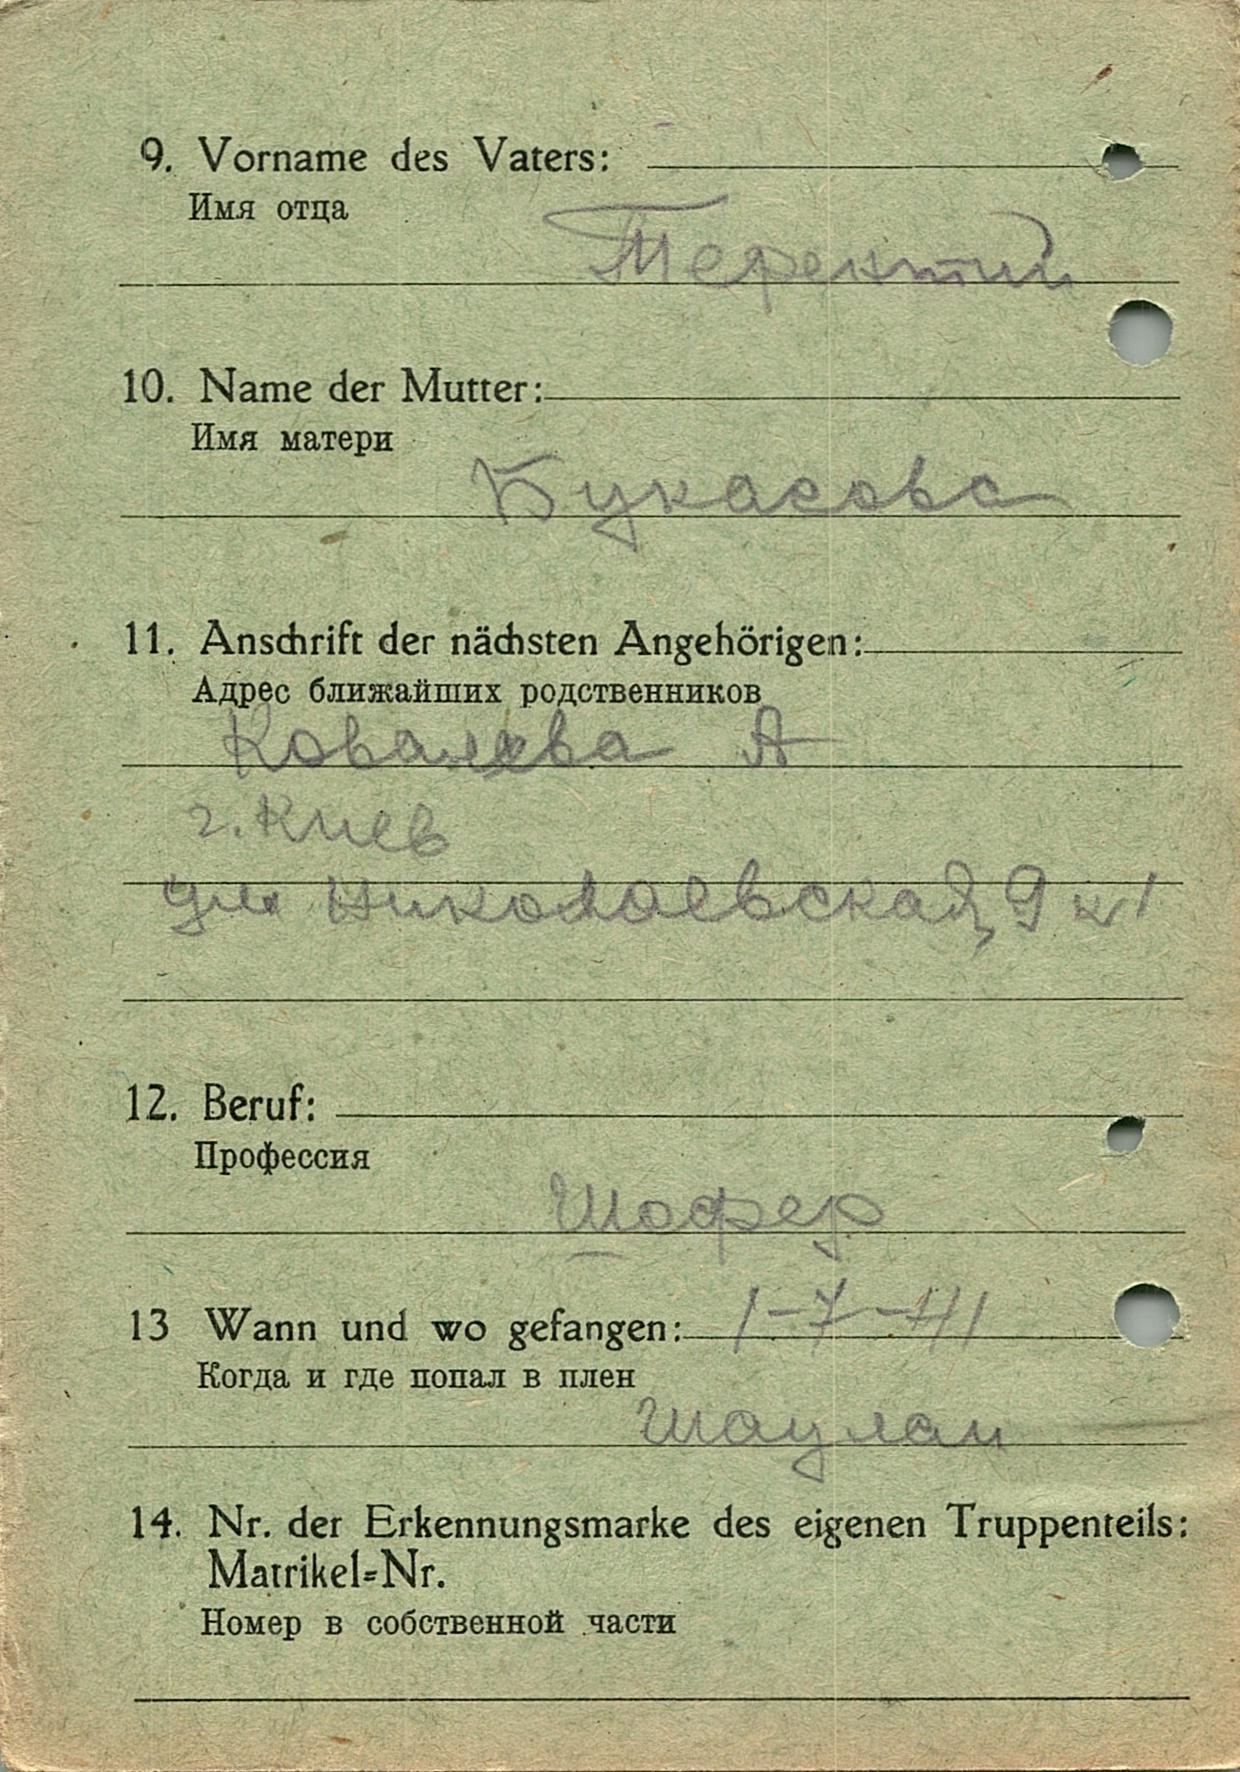 9. Vorname des Vaters:
Имя отца
Терентий
10. Name der Mutter:
Имя матери
Букасова
11. Anschrift der nächsten Angehörigen:
Адрес ближайших родственников
Ковалева А
г. Киев
ул Николаевская, 9 к 1
12. Beruf:
Профессия
Шофер
13 Wann und wo gefangen: 1-7-41
Когда и где попал в плен
Шаулаи
14. Nr. der Erkennungsmarke des eigenen Truppenteils:
Matrikel=Nr.
Номер в собственной части